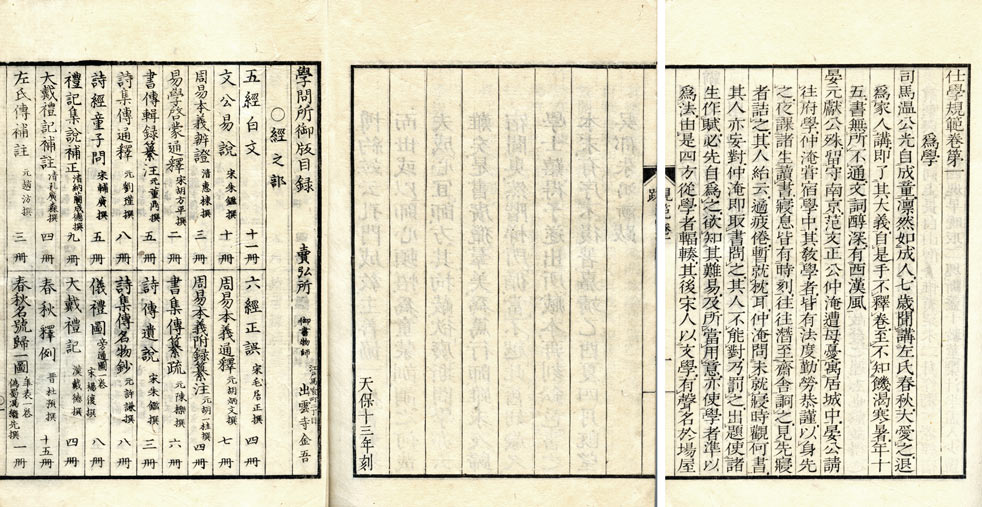 仕學規範卷第一
爲學
司馬溫公光自成童凜然如成人七歲聞講左氏春秋大愛之退
爲家人講即了其大義自是手不釋卷至不知饑渴寒暑年十
五書無所不通文詞醇深有西漢風
晏元獻公殊留守南京范文正公仲淹遭母憂寓居城中晏公請
往府學仲淹嘗宿學中其教學者皆有法度勤勞恭謹以身先
之夜課諸生讀書寢息皆有時刻往往潛至齋舍詗之見先寢
者詰之其人紿云適疲倦暫就枕耳仲淹問未就寢時觀何書
其人亦妄對仲淹即取書問之其人不能對乃罰之出題使諸
生作賦必先自爲之欲知其難易及所當用意亦使學者準以
爲法由是四方從學者輻輳其後宋人以文學有聲名於場屋
一
天保十三年刻
學問所御版目録 賣弘所 御書物師 出雲寺金吾
○經之部
五經白文 十一冊 六經正誤 宋毛居正撰 四冊
文公易說 宋朱鑑撰 十冊 周易本義通釋 元胡炳文撰 七冊
周易本義辨證 清惠棟撰 三冊 周易本義附録纂注 元胡一桂撰 四冊
易學啓蒙通釋 宋胡方平撰 二冊 書集傳纂疏 元陳櫟撰 六冊
書傳輯録纂注 元董鼎撰 五冊 詩傳遺說 宋朱鑑撰 三冊
詩集傳通釋 元劉瑾撰 八冊 詩集傳名物鈔 元許謙撰 八冊
詩經童子問 宋輔廣撰 五冊 儀禮圖 旁通圖一卷 宋楊復撰 八冊
禮記集說補正 清納蘭成德撰 九冊 大戴禮記 漢戴德撰 四冊
大戴禮記補註 清孔廣森撰 四冊 春秋釋例 晉杜預撰 十五冊
左氏傳補註 元趙汸撰 三冊 春秋名號歸一圖 年表一卷 僞蜀馮繼先撰 一冊